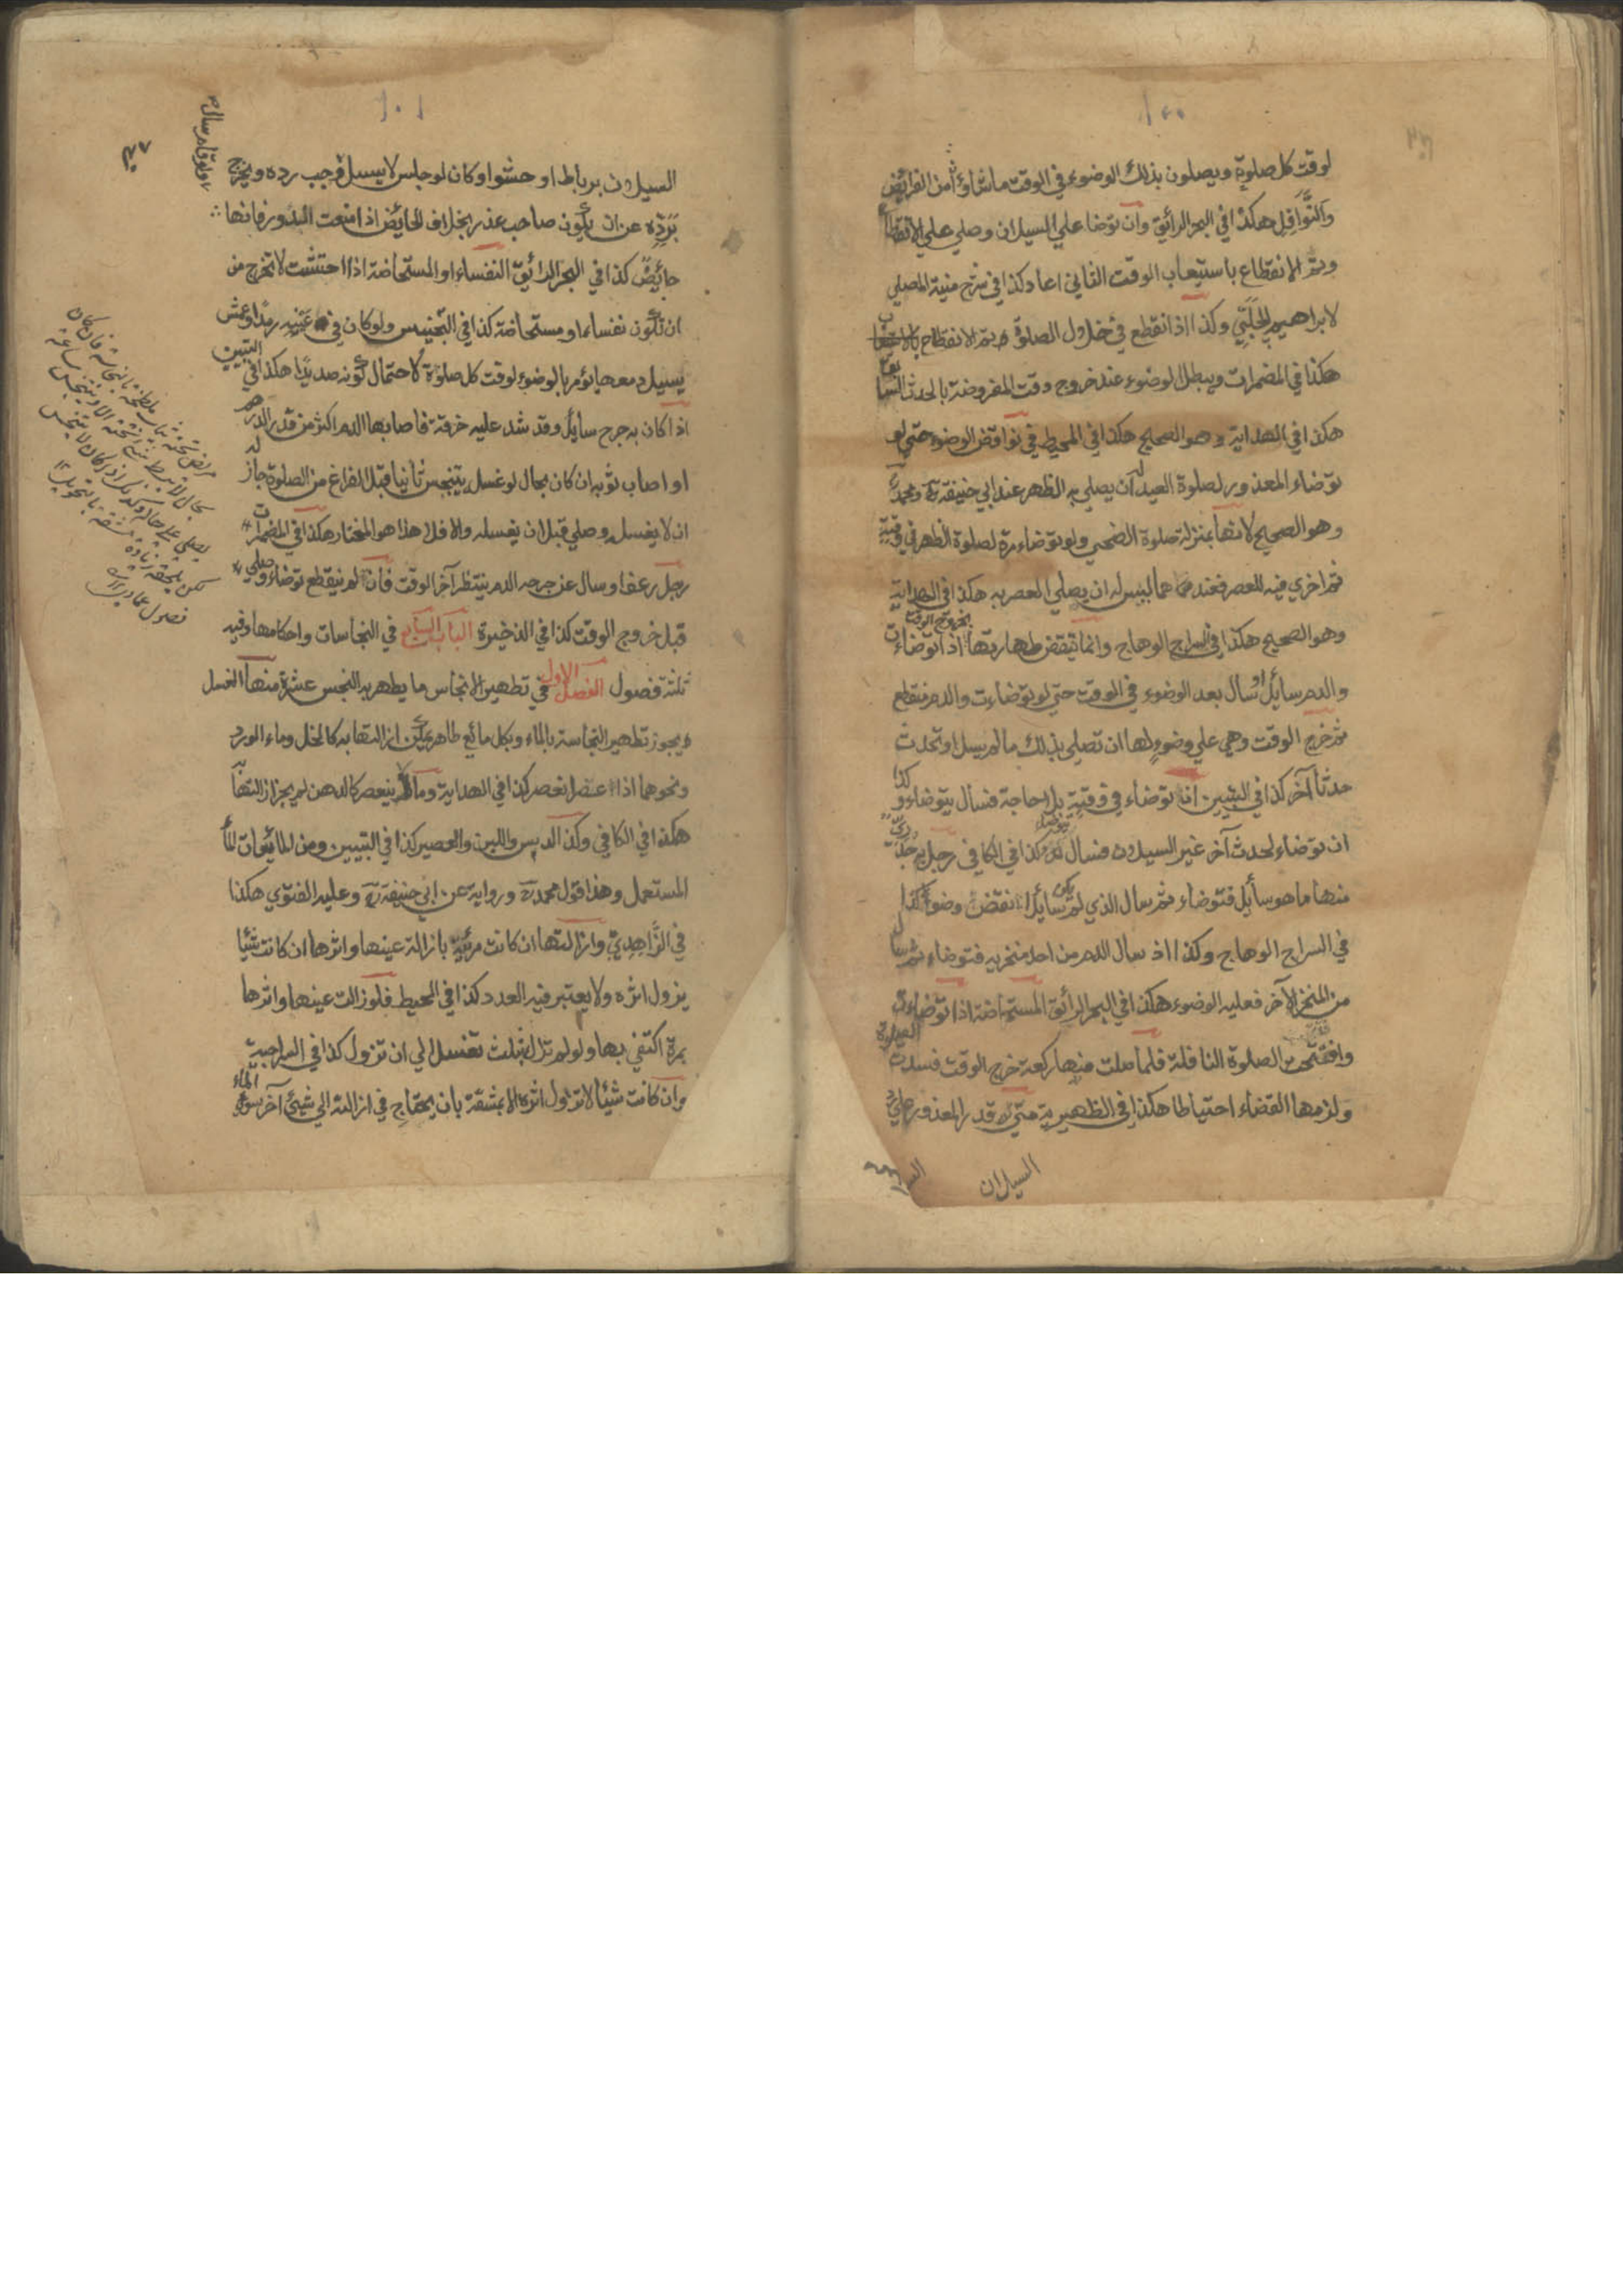 لوقت كل صلوة ويصلون بذلك الوضوء في الوقت ما شاؤا من الفرائض
والنوافل هكذا في البحر الرائق وان توضأ علي السيلان وصلي علي الانقطاع
وتم الانقطاع باستيعاب الوقت الثاني اعاد كذا في شرح منية المصلي
لابراهيم الحلبي وكذا اذا انقطع في خلال الصلوة وتم الانقطاع
هكذا في المضمرات ويبطل الوضوء عند خروج وقت المفروضة بالحدث السابق
هكذا في الهداية وهو الصحيح هكذا في المحيط في نواقض الوضوء حتي لو
توضاء المعذور لصلوة العيد له ان يصلي به الظهر عند ابي حنيفة رح ومحمد رح
وهو الصحيح لانها بمنزلة صلوة الضحي ولو توضاء مرة لصلوة الظهر في وقته
ثم اخري فيه للعصر فعندهما ليس له ان يصلي العصر به هكذا في الهداية
وهو الصحيح هكذا في السراج الوهاج وانما تنقض طهارتها بخروج الوقت اذا توضاءت
والدم سايل او سال بعد الوضوء في الوقت حتي لو توضاءت والدم منقطع
ثم خرج الوقت وهي علي وضوء لها ان تصلي بذلك ما لم يسل او تحدث
حدثا آخر كذا في التبيين اذا توضاء في وقتية بلا حاجة فسال يتوضاء وكذا
ان توضاء لحدث آخر غير السيلان فسال يتوضاء كذا في الكافي رجل به جدري
منها ما هو سايل فتوضاء ثم سال الذي لم يكن سايلا انتقض وضوءه كذا
في السراج الوهاج وكذا اذ سال الدم من احد منخريه فتوضاء ثم سال
من المنخر الآخر فعليه الوضوء هكذا في البحر الرائق المستحاضة اذا توضاءت
وافتتحت الصلوة النافلة فلما صلت منها ركعة خرج الوقت فسدت الصلوة
ولزمها القضاء احتياطا هكذا في الظهيرية متي قدر المعذور علي رد
السيلان
١٠١
السيلان برباط او حشو او كان لو جلس لا يسيل وجب رده ويخرج
برده عن ان يكون صاحب عذر بخلاف الحائض اذا منعت الدرور فانها
حائض كذا في البحر الرائق النفساء او المستحاضة اذا احتشت لا تخرج من
ان تكون نفساء او مستحاضة كذا في التجنيس ولو كان في عينه رمد او عمش
يسيل دمعها يؤمر بالوضوء لوقت كل صلوة لاحتمال كونه صديدا هكذا في التبيين
اذا كان به جرح سايل وقد شد عليه خرقة فاصابها الدم اكثر من قدر الدرهم
او اصاب ثوبه ان كان بحال لو غسل يتنجس ثانيا قبل الفراغ من الصلوة جاز له
ان لا يغسله وصلي قبل ان يغسله والا فلا هذا هو المختار هكذا في المضمرات
رجل رعف او سال عن جرحه الدم ينتظر آخر الوقت فان لم ينقطع توضاء وصلي
قبل خروج الوقت كذا في الذخيرة الباب السابع في النجاسات واحكامها وفيه
ثلثة فصول الفصل الاول في تطهير الانجاس ما يطهر به النجس عشرة منها الغسل
ويجوز تطهير النجاسة بالماء وبكل مائع طاهر يمكن ازالتها به كالخل وماء الورد
ونحوهما اذا عصر انعصر كذا في الهداية وما لا ينعصر كالدهن لم يجز ازالتها
هكذا في الكافي وكذا الدبس واللبن والعصير كذا في التبيين ومن المائعات الماء
المستعمل وهذا قول محمد رح ورواية عن ابي حنيفة رح وعليه الفتوي هكذا
في الزاهدي وازالتها ان كانت مرئية بازالة عينها واثرها ان كانت شيئا
يزول اثره ولا يعتبر فيه العدد كذا في المحيط فلو زالت عينها واثرها
بمرة اكتفي بها ولو لم تزل بثلث تغسل الي ان تزول كذا في السراجية
وان كانت شيئا لا تزول اثره الا بمشقة بان يحتاج في ازالته الي شيئ آخر سوي الماء